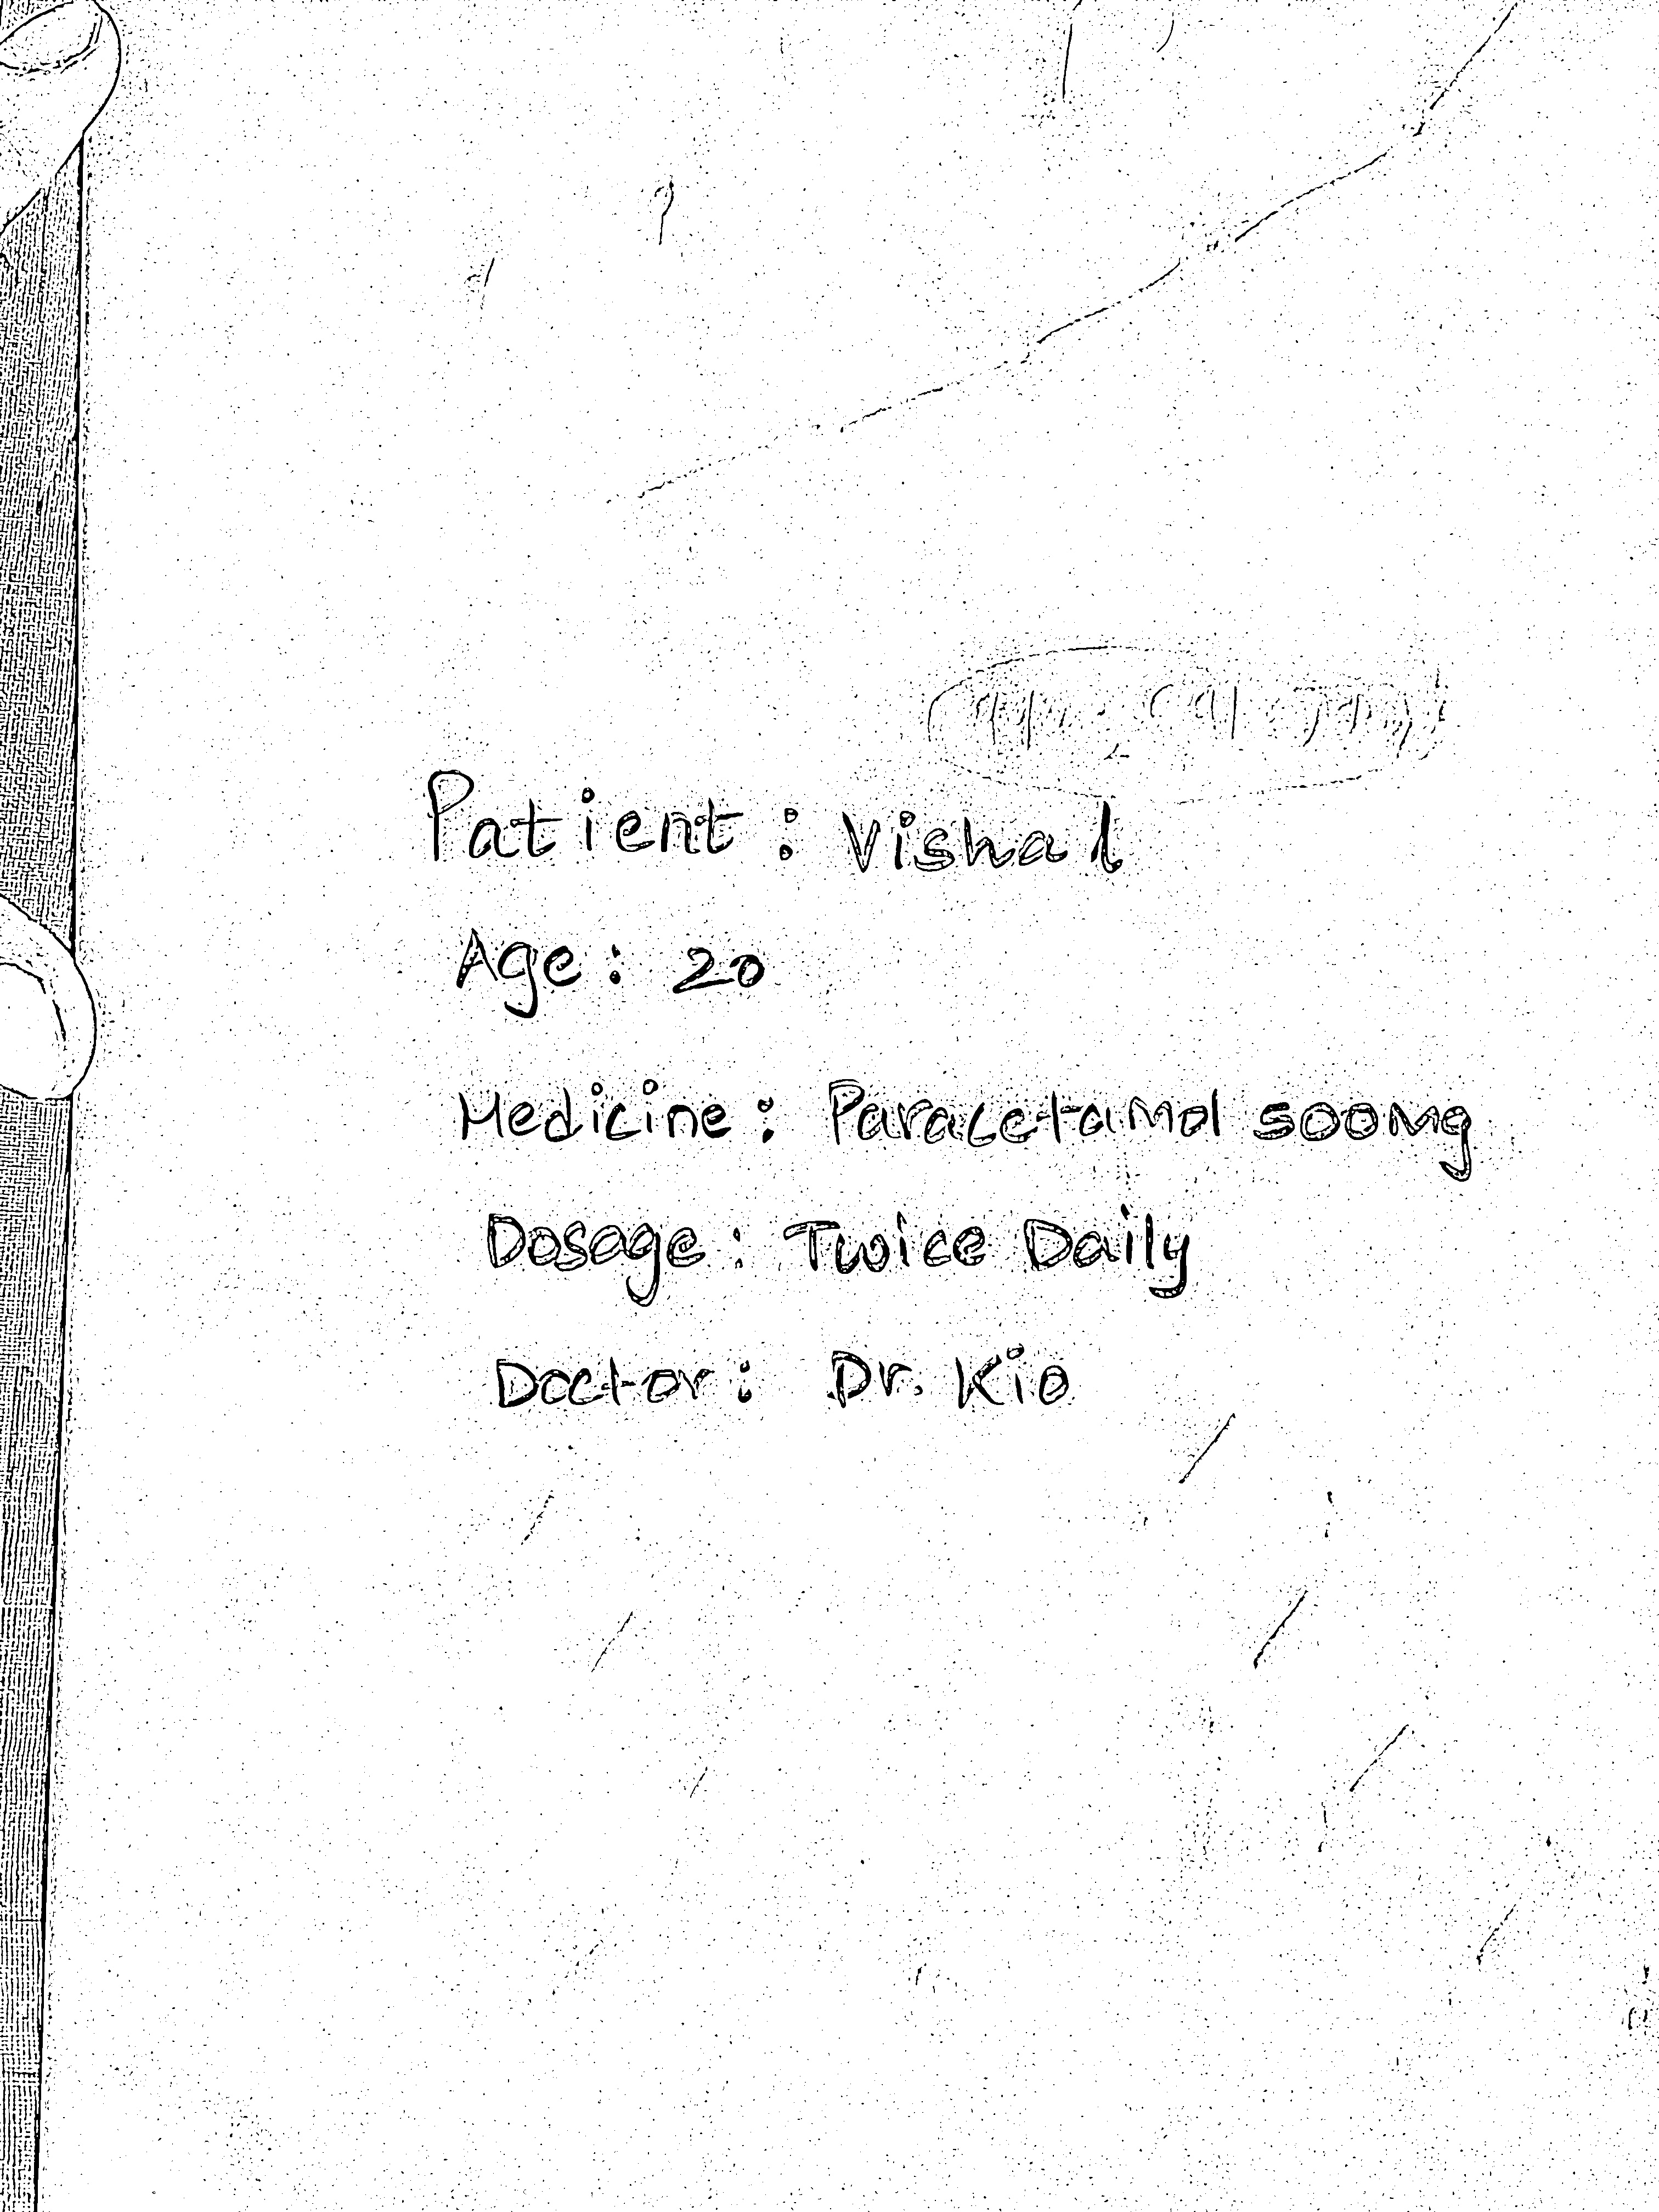 Patient : Vishal
Age : 20
Medicine : Paracetamol 500mg
Dosage : Twice Daily
Doctor : Dr. Kio